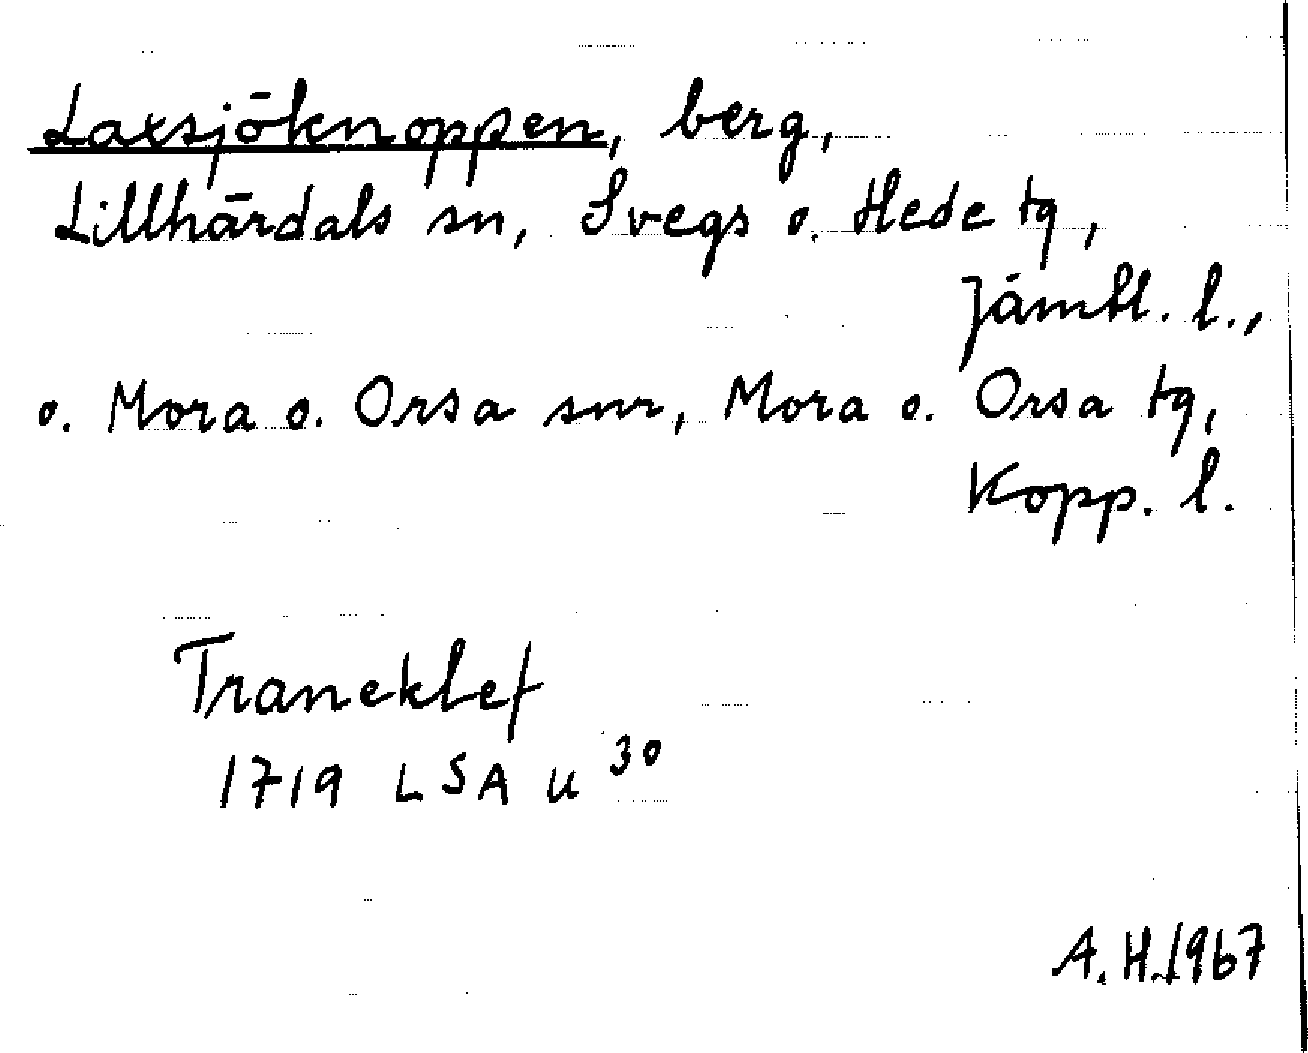 Laxsjöknoppen, berg,
Lillhärdals sn, Svegs o. Hede tg,
Jämtl. l.,
o. Mora o. Orsa snr, Mora o. Orsa tg,
Kopp. l.
Traneklef
1719 LSA U 30
A.H. 1967